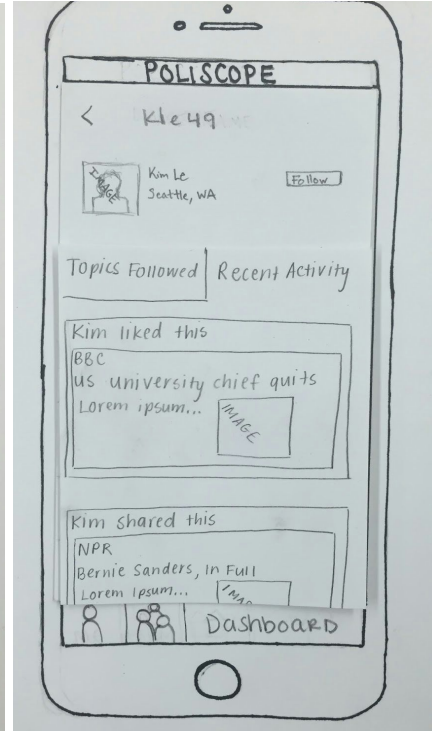 POLISCOPE
< Kle49
IMAGE
Kim Le
Seattle, WA
Follow
Topics Followed
Recent Activity
Kim liked this
BBC
us university chief quits
Lorem ipsum...
IMAGE
Kim shared this
NPR
Bernie Sanders, In Full
Lorem Ipsum...
IMA
Dashboard